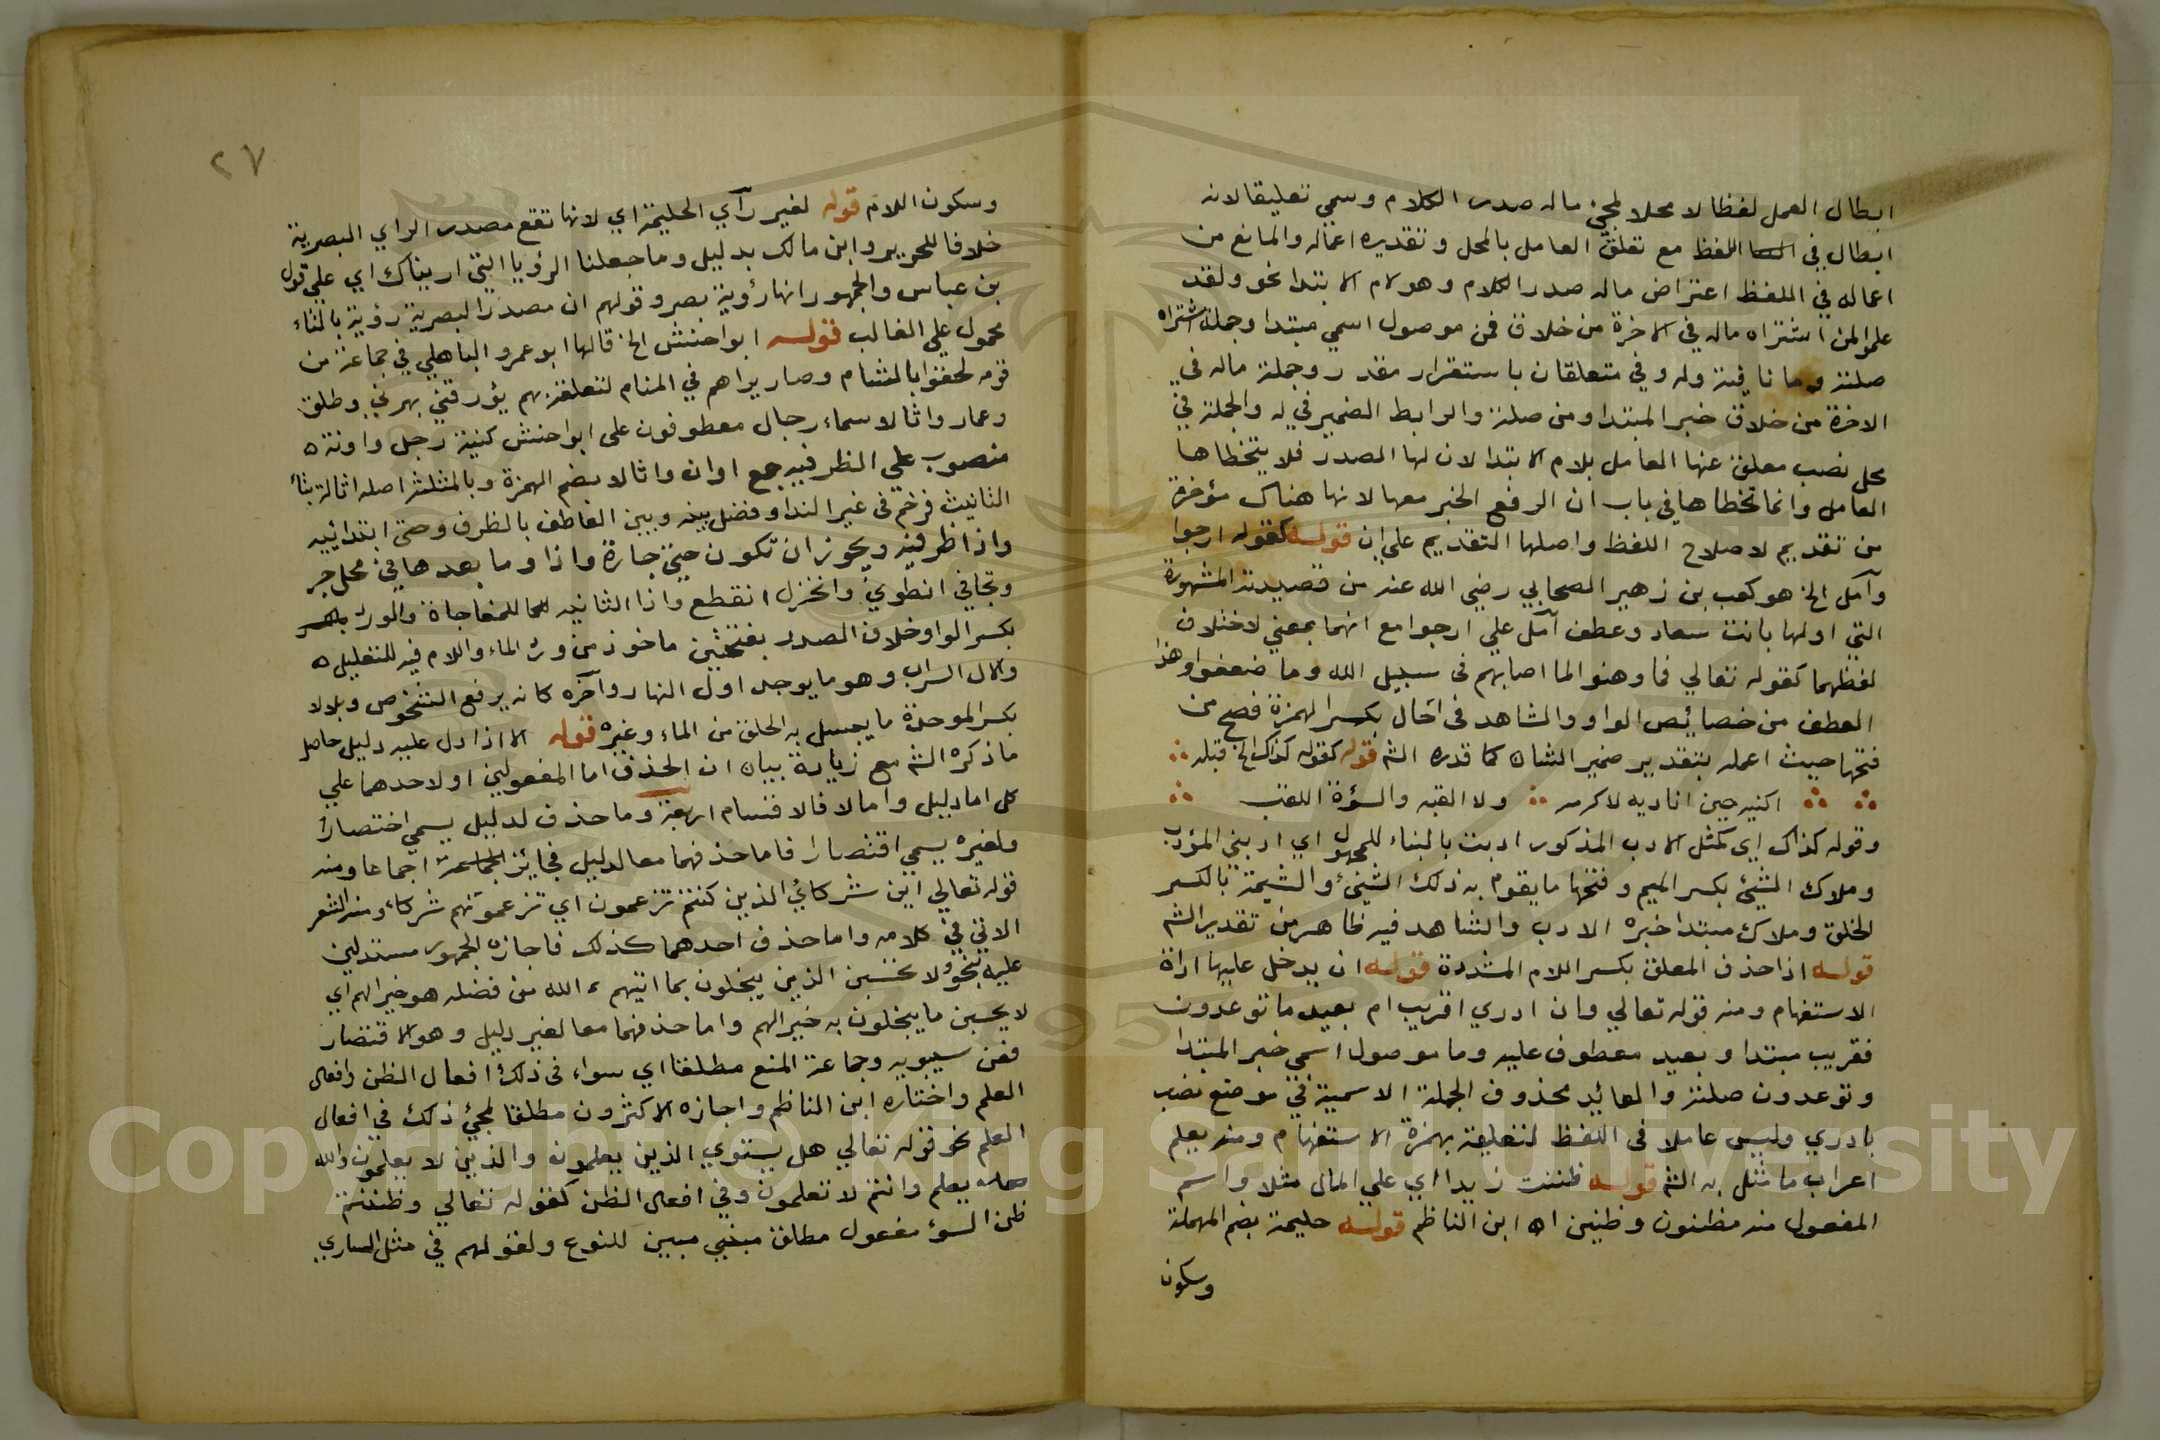 ابطال العمل لفظا لا محلا لمجئ ماله صدر الكلام وسمي تعليقا لانه
ابطال في اللفظ مع تعلق العامل بالمحل وتقديره اعماله والمانع من
اعماله في اللفظ اعتراض ماله صدر الكلام وهو لام الابتدا نحو ولقد
علموا لمن اشتراه ماله في الاخرة من خلاق فمن موصول اسمي مبتدا وجملة اشتراه
صلته وما نافية وله وفي متعلقان باستقرار مقدر وجملة ماله في
الاخرة من خلاق خبر المبتدا ومن صلته والرابط الضمير في له والجملة في
محل نصب معلق عنها العامل بلام الابتدا لان لها الصدر فلا يتخطاها
العامل وانما تخطاها في باب ان الرفع الخبر معها لانها هناك مؤخرة
من تقديم لاصلاح اللفظ واصلها التقديم علي ان قوله كقوله ارجوا
وآمل الخ هو كعب بن زهير الصحابي رضي الله عنه من قصيدته المشهورة
التي اولها بانت سعاد وعطف آمل علي ارجوا مع انهما بمعني لاختلاف
لفظهما كقوله تعالي فما وهنوا لما اصابهم في سبيل الله وما ضعفوا وهذا
العطف من خصائص الواو والشاهد في اخال بكسر الهمزة فصح من
فتحها حيث اعمله بتقدير ضمير الشان كما قدره الشم قوله كقوله كذاك الخ قبله
اكنيه حين اناديه لاكرمه ولا القبه والسؤة اللقب
وقوله كذاك اي كمثل الادب المذكور ادبت بالبناء للمجهول اي ادبني المؤدب
وملاك الشئ بكسر الميم وفتحها ما يقوم به ذلك الشئ والشيمة بالكسر
الخلق وملاك مبتدا خبره الادب والشاهد فيه ظاهر من تقدير الشم
قوله اذا حذف المعلق بكسر اللام المشددة قوله ان يدخل عليها اداة
الاستفهام ومنه قوله تعالي وان ادري اقريب ام بعيد ما توعدون
فقريب مبتدا وبعيد معطوف عليه وما موصول اسمي خبر المبتدا
وتوعدون صلته والعائد محذوف الجملة الاسمية في موضع نصب
بادري وليس عاملا في اللفظ لتعليقه بهمزة الاستفهام ومنه يعلم
اعراب ما مثل به الشم قوله ظننت زيدا اي علي المال مثلا واسم
المفعول منه مظنون وظنين اه ابن الناظم قوله حليمة بضم المهملة
وسكون
٢٧
وسكون اللام قوله لغير رآي الحليمة اي لانها تقع مصدر الراي البصرية
خلافا للحرير وابن مالك بدليل وما جعلنا الرؤيا التي اريناك اي علي قول
بن عباس والجمهور انها رؤية بصر وقولهم ان مصدر البصرية رؤية بالتاء
محمول علي الغالب قوله ابو احنش الخ قالها ابو عمرو الباهلي في جماعة من
قومه لحقوا بالشام وصار يراهم في المنام لتعلقه بهم يؤرقني يهرني وطلق
وعمار واثالا سماء رجال معطوفون على ابو احنش كنية رجل واونة ه
منصوب علي الظرفيه جمع اوان واثالا بضم الهمزة وبالمثلثه اصله اثالة بتاء
التانيث فرخم في غير الندا وفصل بينه وبين العاطف بالظرف وحتى ابتدائيه
واذا ظرفية ويجوز ان تكون حتى جارة واذا وما بعدها في محل جر
وتجافي انطوي وانخزل انقطع واذا الثانيه للمفاجاة والورد بكسر
بكسر الواو خلاف المصدر بفتحتين ماخوذ من ورد الماء واللام فيه للتعليل ه
والال السراب وهو ما يوجد اول النهار وآخره كانه يرفع الشخوص وبلالا
بكسر الموحدة ما يبسل به الحلق من الماء وغيره قوله الا اذا دل عليه دليل حاصل
ما ذكره الشم مع زيادة بيان ان الحذف اما المفعولين او لاحدهما علي
كل اما دليل واما لا فالاقسام اربعة وما حذف لدليل يسمي اختصارا
ولغيره يسمي اقتصارا فاما حذفهما معا لدليل فجائز اجماعا ومنه
قوله تعالي اين شركائي الذين كنتم تزعمون اي تزعمونهم شركاء ومنه الشعر
الاتي في كلامه واما حذف احدهما كذلك فاجازه الجمهور مستدلين
عليه بنحو ولا تحسبن الذين يبخلون بما اتيهم الله من فضله هو خيرا لهم اي
لا يحسبن ما يبخلون به خيرا لهم واما حذفهما معا لغير دليل وهو الاقتصار
فعن سيبويه وجماعة المنع مطلقا اي سواء في ذلك افعال الظن وافعال
العلم واختاره ابن الناظم واجازه الاكثرون مطلقا لمجئ ذلك في افعال
العلم نحو قوله تعالي هل يستوي الذين يعلمون والذين لا يعلمون والله
يعلم وانتم لا تعلمون وفي افعال الظن كقوله تعالي وظننتم
ظن السوء مفعول مطلق مبني مبين للنوع ولقولهم في مثل الساري
Copyright © King Saud University